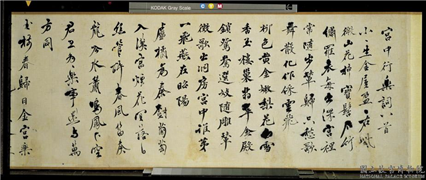 KODAK Gray Scale
宮中行樂詞八首
小生金屋盈盈在紫
微山花插寶髻石竹
繡羅衣每出深宮裡
常隨步輦歸只愁歌
舞散化作綵雲飛
柳色黃金嫩梨花白雪
香玉樓巢翡翠金殿
鎖鴛鴦選妓隨雕輦
徵歌出洞房宮中誰第
一飛燕在昭陽
盧橘為秦樹蒲萄
入漢宮煙花宜落日
絲管醉春風笛奏
龍吟水簫鳴鳳下空
君王多樂事還與萬
方同
玉樹春歸日金宮樂
國立故宮博物院
NATIONAL PALACE MUSEUM